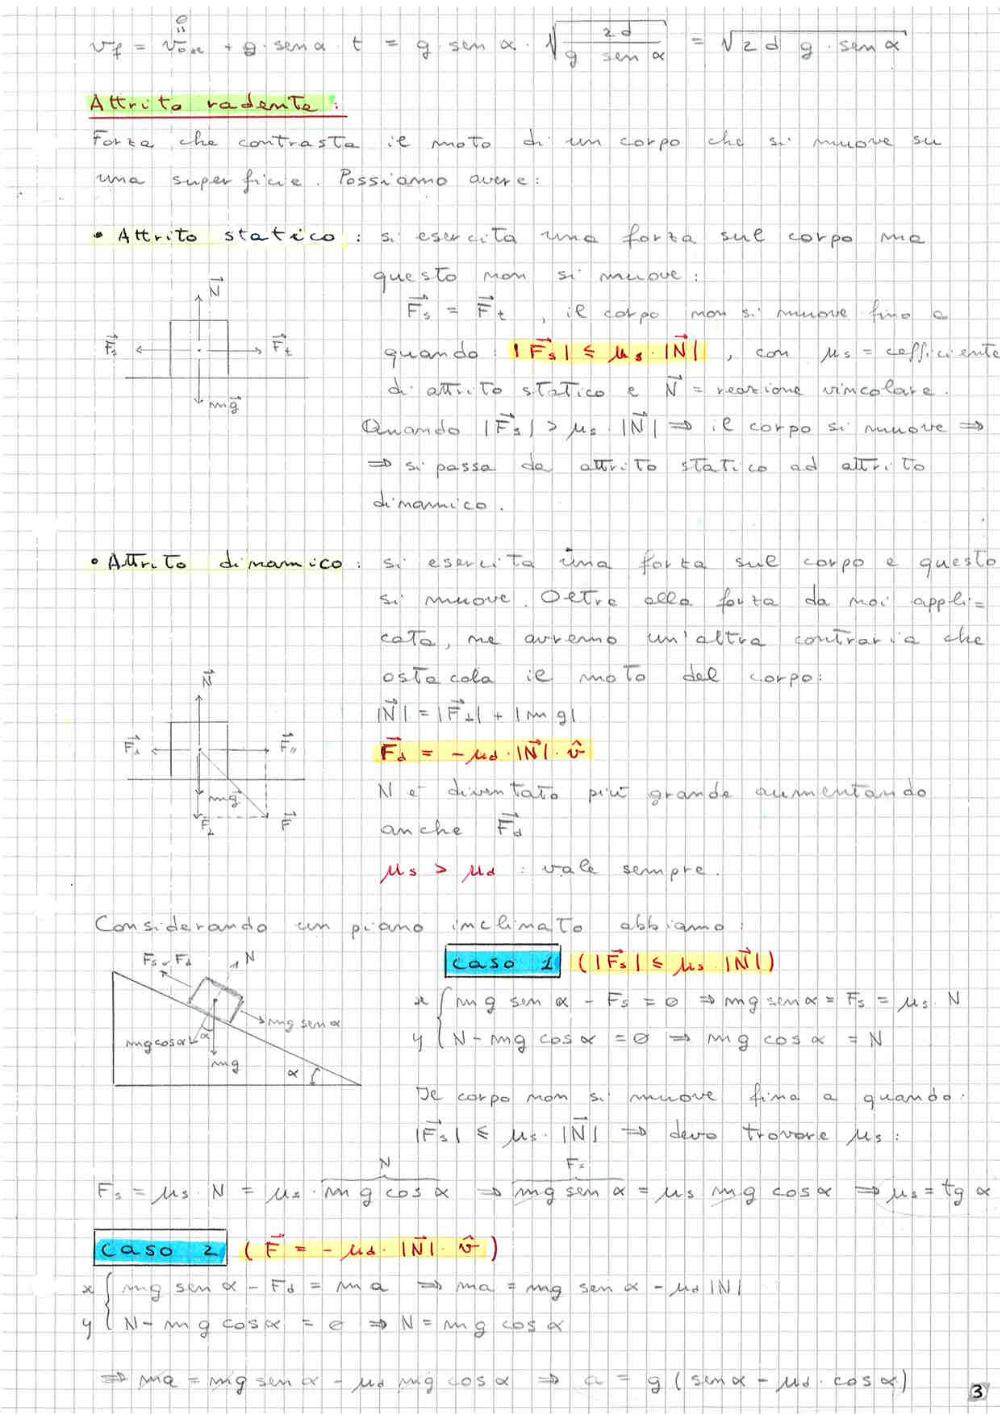 0
v_f = v_0x + g · sen α · t = g · sen α · √(2d / g sen α) = √(2 d g · sen α)
Attrito radente :
Forza che contrasta il moto di un corpo che si muove su
una superficie. Possiamo avere:
• Attrito statico : si esercita una forza sul corpo ma
questo non si muove:
F⃗s = F⃗t , il corpo non si muove fino a
quando : |F⃗s| ≤ μs · |N⃗| , con μs = cefficiente
di attrito statico e N⃗ = reazione vincolare.
Quando |F⃗s| > μs · |N⃗| ⇒ il corpo si muove ⇒
⇒ si passa da attrito statico ad attrito
dinamico.
N⃗
F⃗s
F⃗t
mg⃗
• Attrito dinamico : si esercita una forza sul corpo e questo
si muove. Oltre alla forza da noi appli=
cata, ne avremo un'altra contraria che
ostacola il moto del corpo:
|N⃗| = |F⃗⊥| + |mg|
F⃗d = -μd · |N⃗| · v̂
N è diventato più grande aumentando
anche F⃗d
μs > μd : vale sempre.
N⃗
F⃗d
F⃗//
mg⃗
F⃗⊥
F⃗
Considerando un piano inclinato abbiamo:
Caso 1 (|F⃗s| ≤ μs · |N⃗|)
x { mg sen α - Fs = 0 ⇒ mg sen α = Fs = μs · N
y { N - mg cos α = 0 ⇒ mg cos α = N
Fs o Fd
N
mg sen α
mg cos α
α
mg
α
Il corpo non si muove fino a quando:
|F⃗s| ≤ μs · |N⃗| ⇒ devo trovare μs :
N
Fs
Fs = μs · N = μs · mg cos α ⇒ mg sen α = μs mg cos α ⇒ μs = tg α
Caso 2 (F⃗ = - μd · |N⃗| · v̂)
x { mg sen α - Fd = m a ⇒ ma = mg sen α - μd |N|
y { N - mg cos α = 0 ⇒ N = mg cos α
⇒ ma = mg sen α - μd mg cos α ⇒ a = g (sen α - μd · cos α)
3